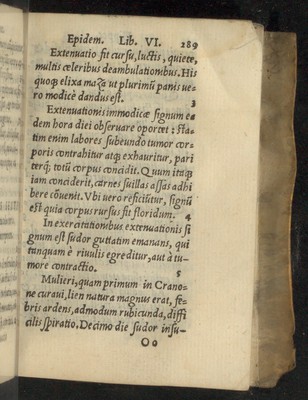 Epidem. Lib. VI. 289
Extenuatio fit cursu, luctis, quiete,
multis celeribus deambulationibus. His
quoq; elixa maza ut plurimū panis ue-
ro modicè dandus est. 3
Extenuationis immodicæ signum ea
dem hora diei obseruare oportet : sta-
tim enim labores subeundo tumor cor-
poris contrahitur atq; exhauritur, pari
terq́; totū corpus concidit. Quum itaq;
iam conciderit, carnes suillas assas adhi
bere cōuenit. Vbi uero reficiūtur, signū
est quia corpus rursus fit floridum. 4
In exercitationibus extenuationis si
gnum est sudor guttatim emanans, qui
tanquam è riuulis egreditur, aut à tu-
more contractio. 5
Mulieri, quam primum in Crano-
ne curaui, lien natura magnus erat, fe-
bris ardens, admodum rubicunda, diffi
cilis spiratio. Decimo die sudor insu-
Oo